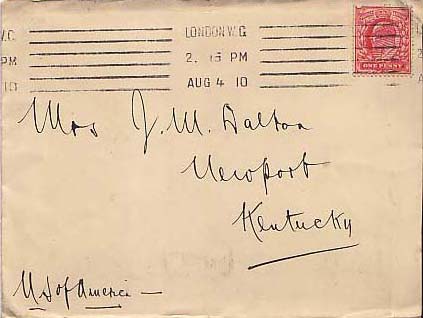 W.C. LONDON W.C
PM 2. 15 PM
10 AUG 4 10
ONE PENNY
Mrs J. M. Dalton
Newport
Kentucky
U S of America